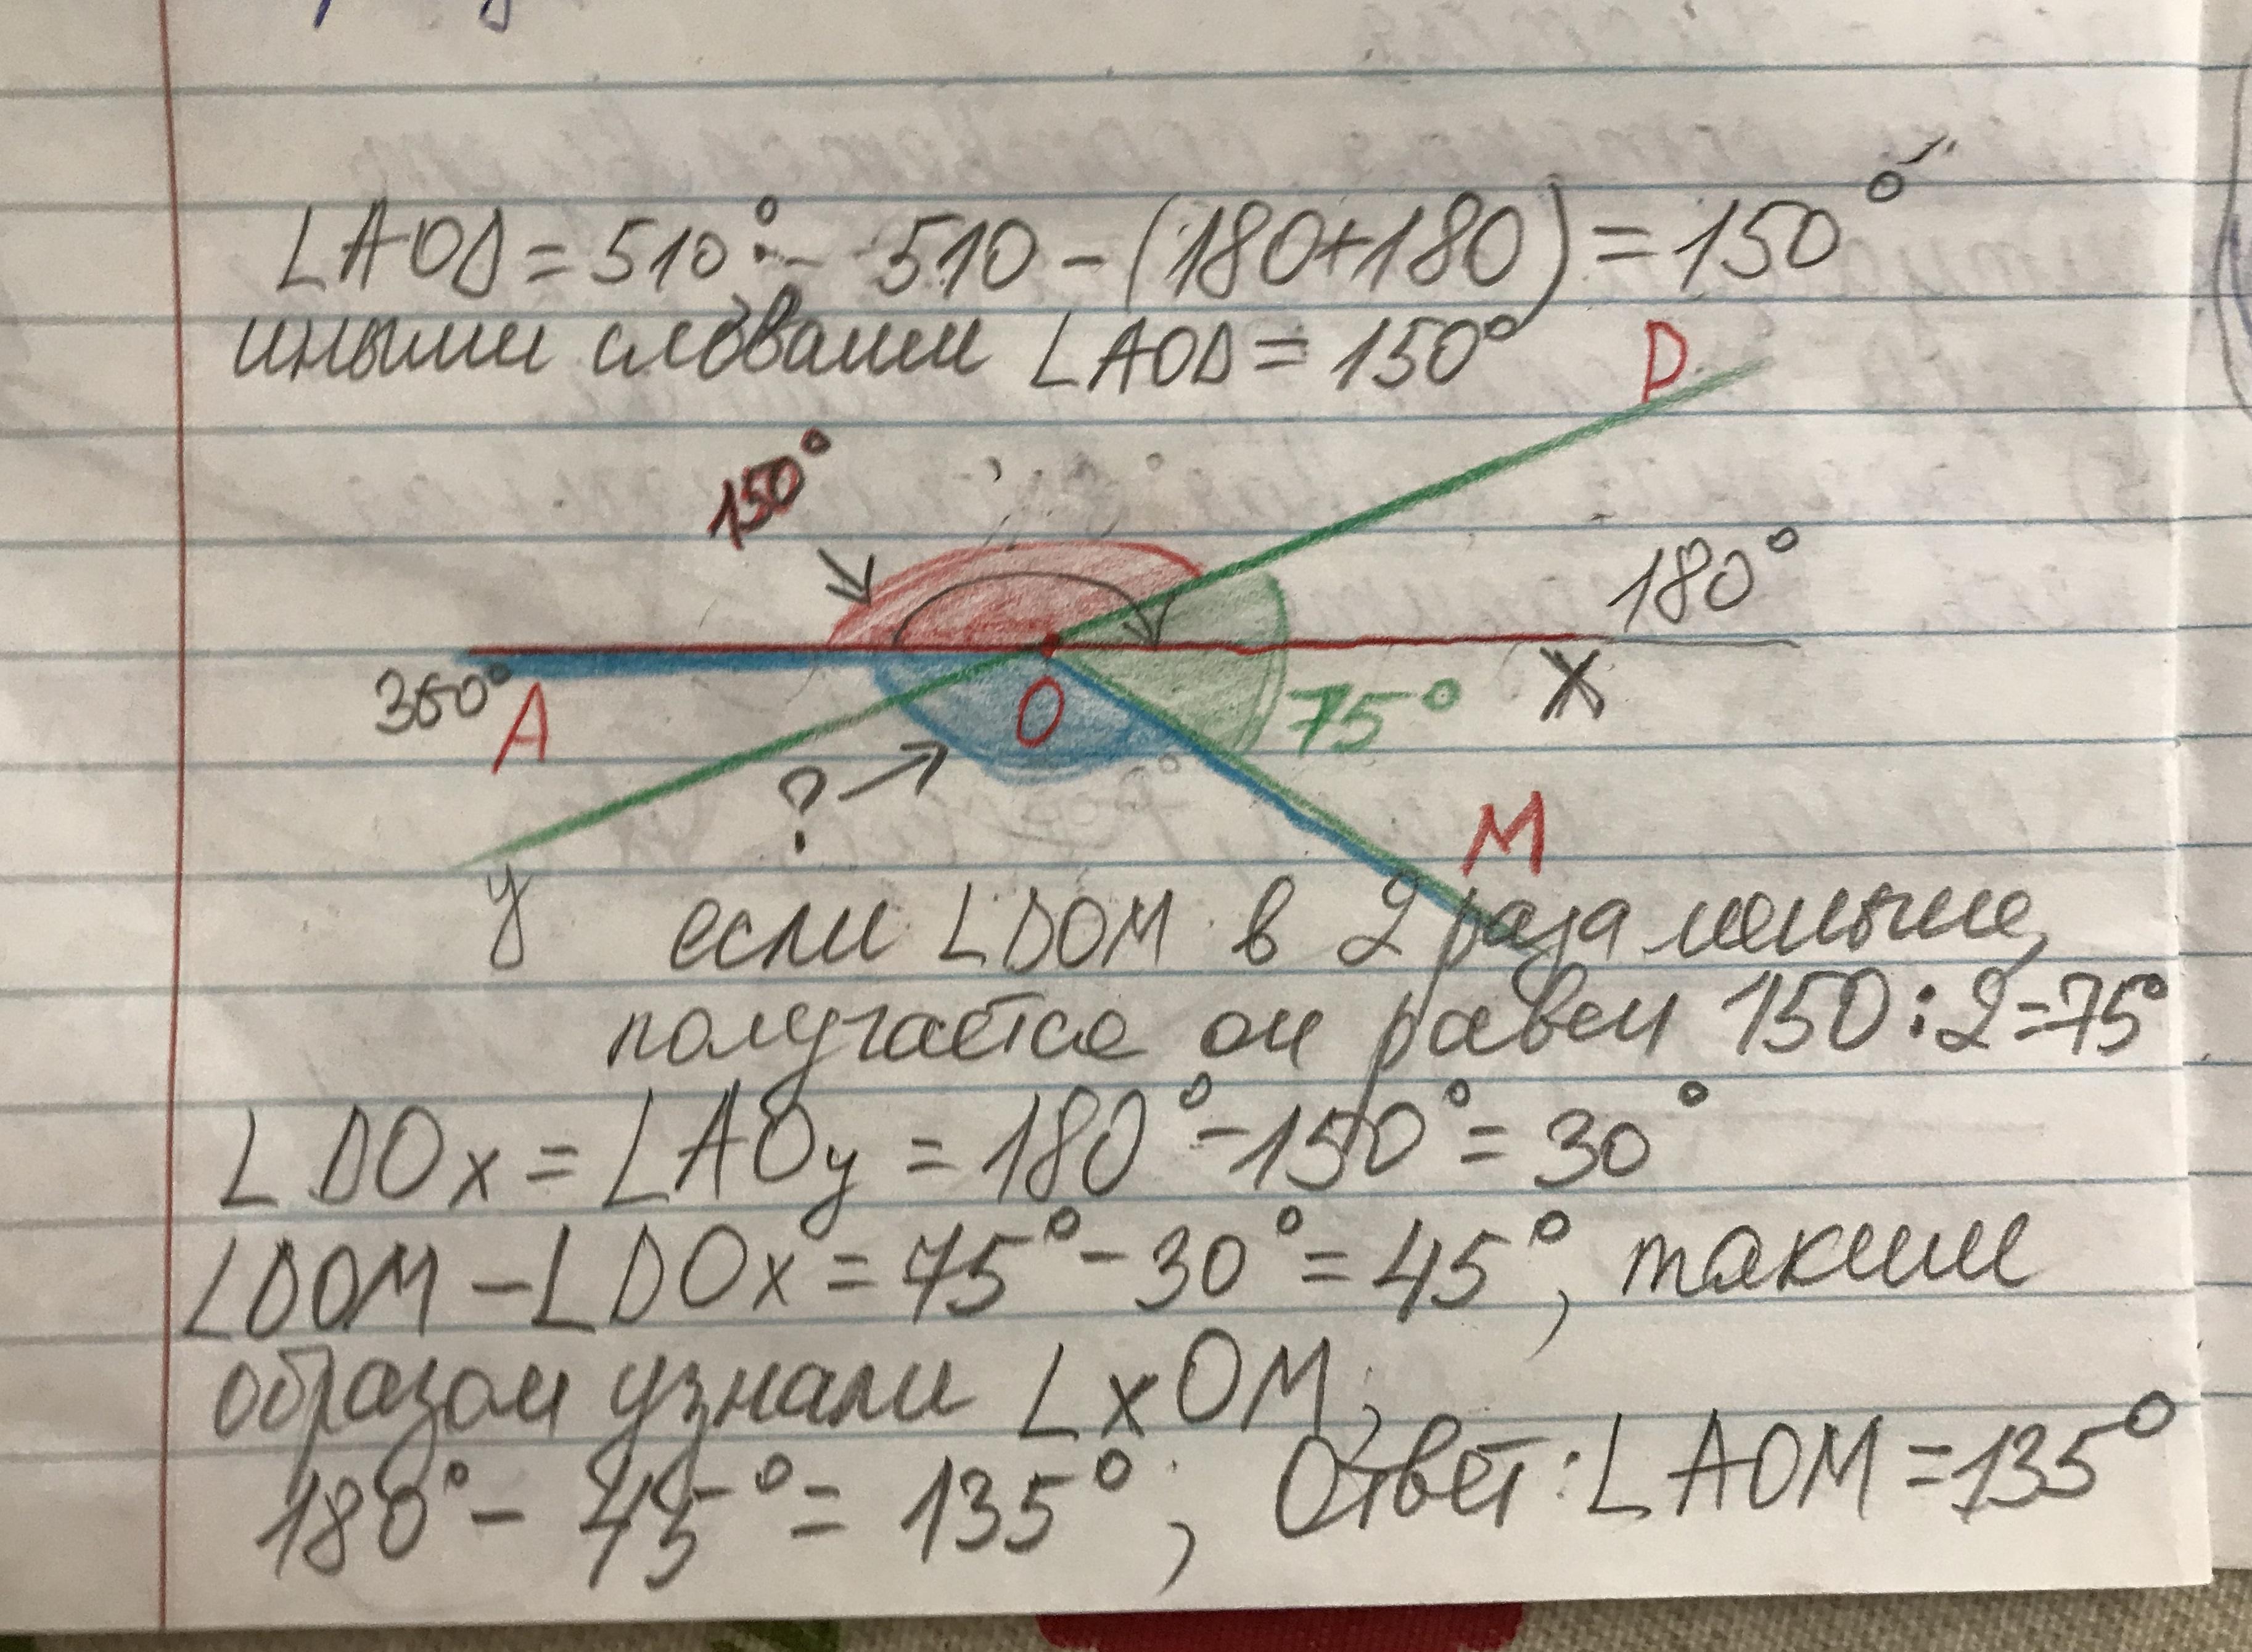 ∠AOD = 510° - 510 - (180+180) = 150°
иными словами ∠AOD = 150°
D
150°
180°
360°
A
O
75°
X
?
M
y
если ∠DOM в 2 раза меньше,
получается он равен 150:2=75°
∠DOx = ∠AOy = 180°-150°= 30°
∠DOM - ∠DOx = 75° - 30° = 45°, таким
образом узнали ∠xOM;
180° - 45° = 135°; Ответ: ∠AOM = 135°